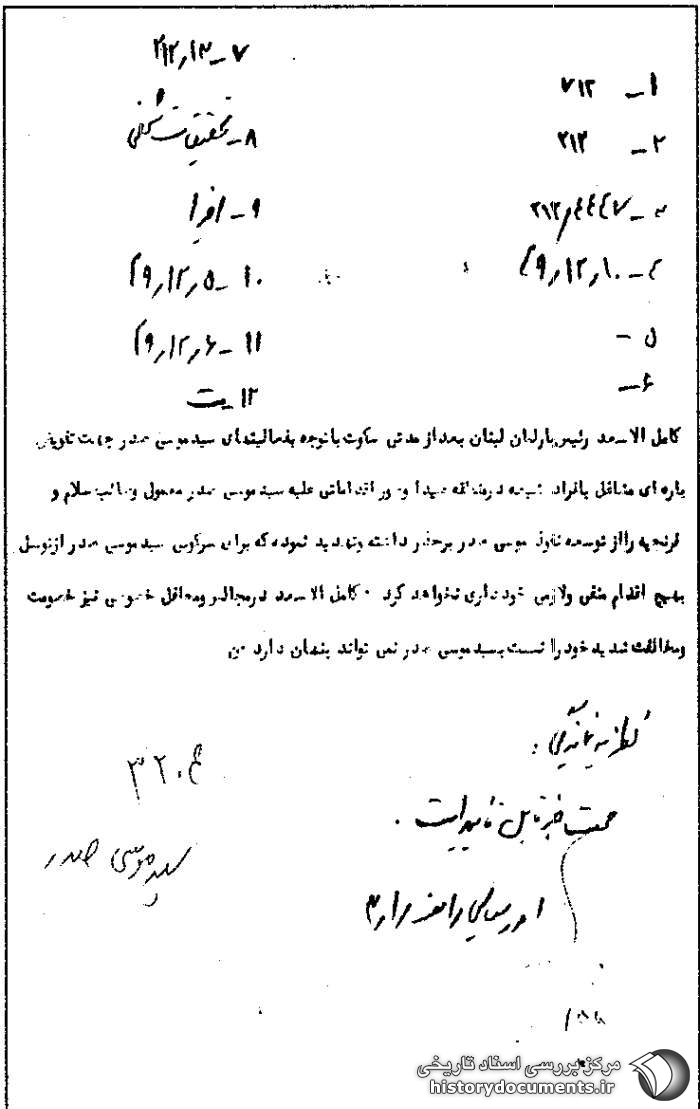 ۱- ۷۱۲
۲- ۲۱۲
۴- ۱۰ر۱۲ر۴۹
۵-
۶-
۷- ۲۱۲ر۱۳
۸- تحقیقات شخصی
۹-
۱۰- ۵ر۱۲ر۴۹
۱۱- ۶ر۱۲ر۴۹
۱۲-
کامل الاسعد رئیس پارلمان لبنان بعد از مدتی سکوت با توجه بفعالیتهای سید موسی صدر جهت تفویض
پاره ای مشاغل بافراد شیعه در منطقه صیدا اقداماتی علیه سید موسی صدر معمول وصائب سلام و
فرنجیه را از توسعه نفوذ موسی صدر برحذر داشته وتهدید نموده که برای سرکوبی سید موسی صدر از توسل
بهیچ اقدام منفی ولازمی خودداری نخواهد کرد ۰ کامل الاسعد در مجالس ومحافل خصوصی نیز خصومت
ومخالفت شدید خود را نسبت بسید موسی صدر نمی تواند پنهان دارد
نظریه نمایندگی :
صحت خبر قابل تائید است .
ع . ۳۲۰
سید موسی صدر
مرکز بررسی اسناد تاریخی
historydocuments.ir